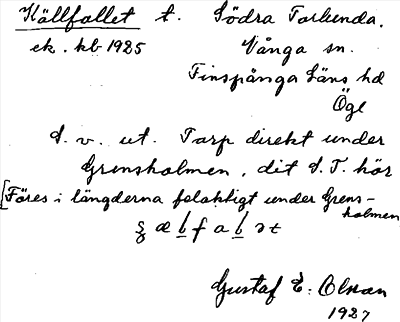 Källfallet t. Södra Torlunda.
ek. kb 1925 Vånga sn.
Finspånga Läns hd
Ögl
S. v. ut. Torp direkt under
Grensholmen, dit S. T. hör
[Föres i längderna felaktigt under Grens-
holmen
Gustaf E: Olsson
1927